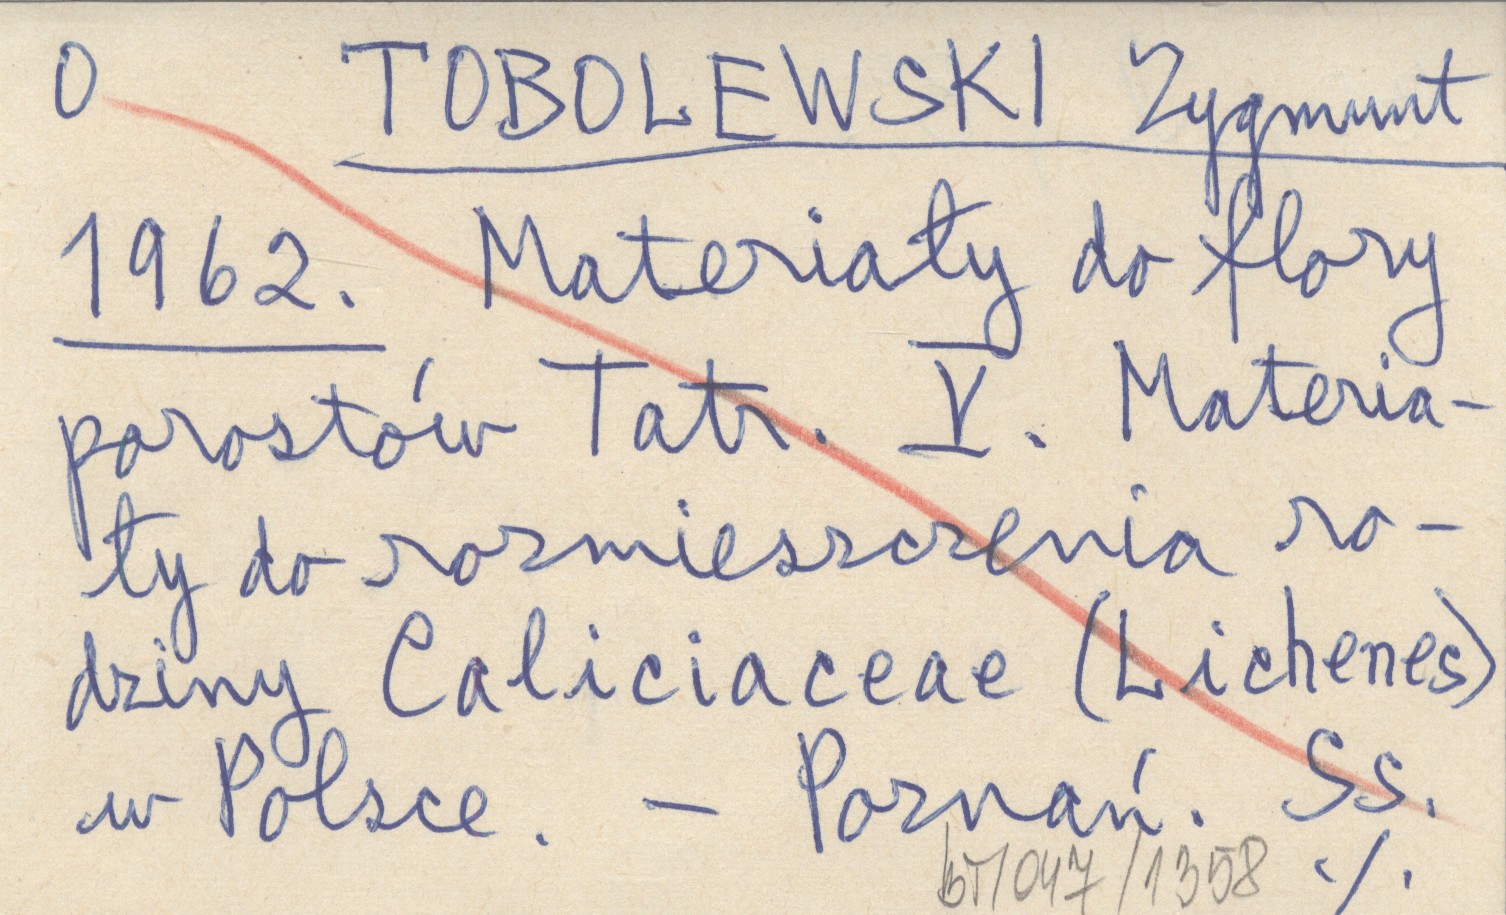 O TOBOLEWSKI Zygmunt
1962. Materiały do flory
porostów Tatr. V. Materia-
ły do rozmieszczenia ro-
dziny Caliciaceae (Lichenes)
w Polsce. - Poznań. Ss.
/047/1358 ./.